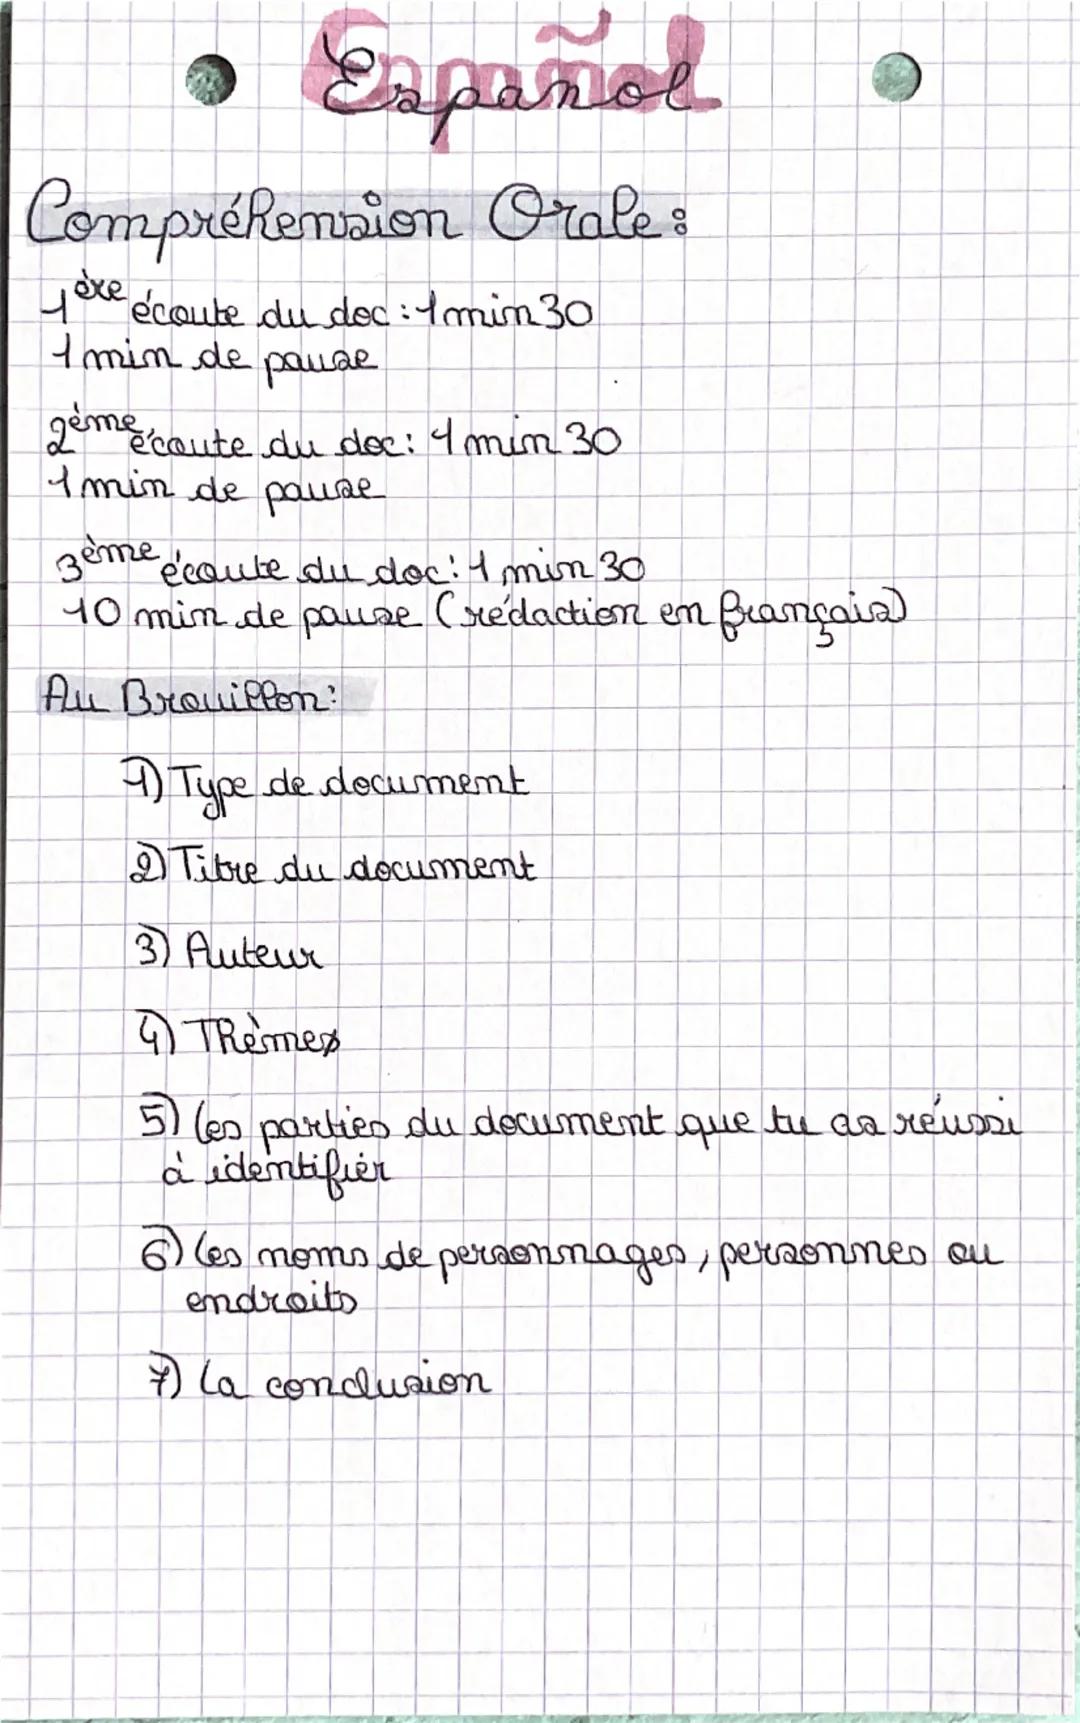 Español
Compréhension Orale:
1ère écoute du doc: 1min30
1 min de pause
2ème écoute du doc: 1 min 30
1 min de pause
3ème écoute du doc: 1 min 30
10 min de pause (rédaction en français)
Au Brouillon:
1) Type de document
2) Titre du document
3) Auteur
4) Thèmes
5) les parties du document que tu as réussi
à identifier
6) les noms de personnages, personnes ou
endroits
7) la conclusion